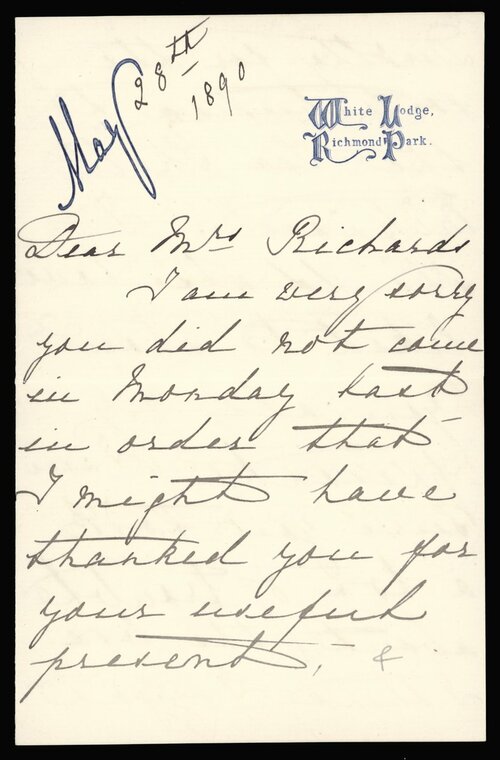 May 28th 1890
White Lodge,
Richmond Park.
Dear Mrs Richards
I am very sorry
you did not come
in Monday last
in order that
I might have
thanked you for
your useful
present, &